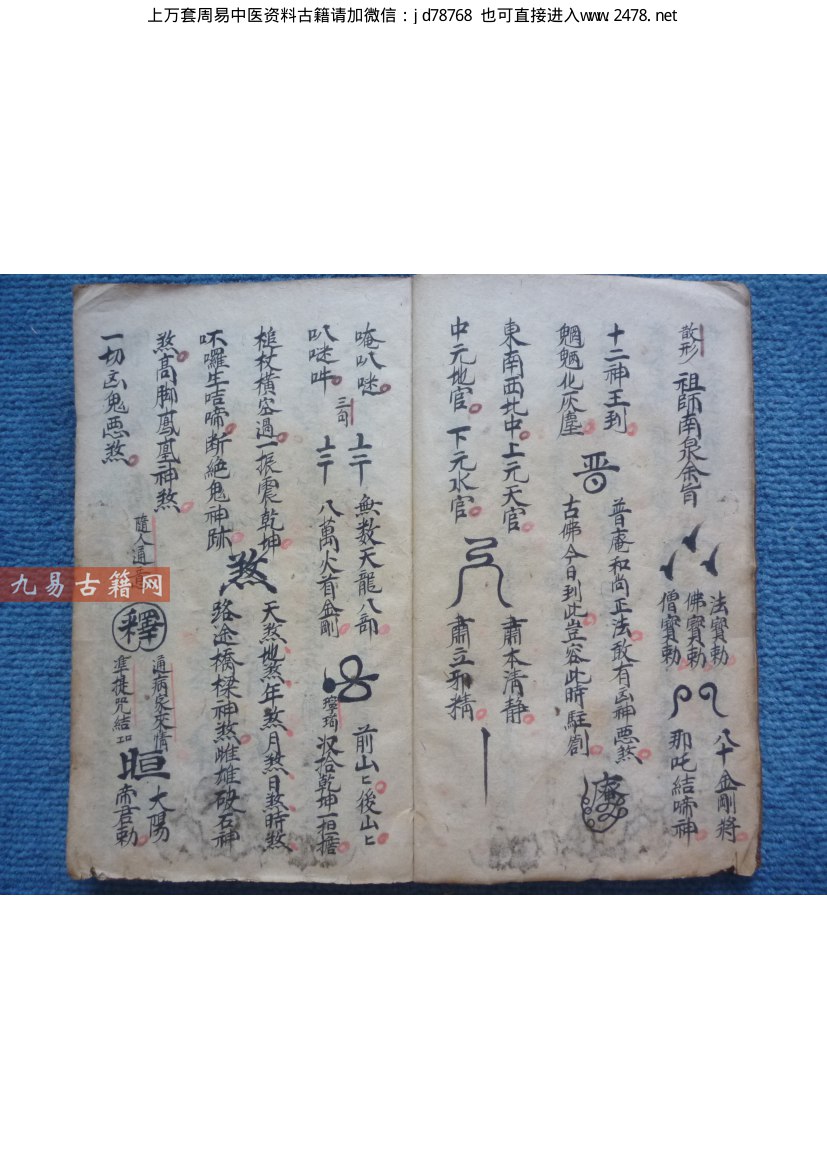 上万套周易中医资料古籍请加微信：jd78768 也可直接进入www.2478.net
散形
祖師南泉余旨
法寶勅
佛寶勅
僧寶勅
八十金剛將
那吒結啼神
十二神王到
魍魎化灰塵
晋
普庵和尚正法敢有凶神惡煞
古佛今日到此豈容此時駐劄
東南西北中上元天官
中元地官下元水官
肅本清静
肅立邪精
唵叭㖿
叭㖿吽
三司
無数天龍八部
八萬火首金剛
前山ヒ後山ヒ
収拾乾坤一担擔
槌杖横空過一振震乾坤
㕻囉生咭啼断絶鬼神跡
煞
天煞地煞年煞月煞日煞時煞
路途橋樑神煞雌雄破石神
煞高脚鳳凰神煞
一切凶鬼惡煞
隨人通
釋
通病家來情
凖提咒結
晅
太陽
帝君勅
九易古籍网